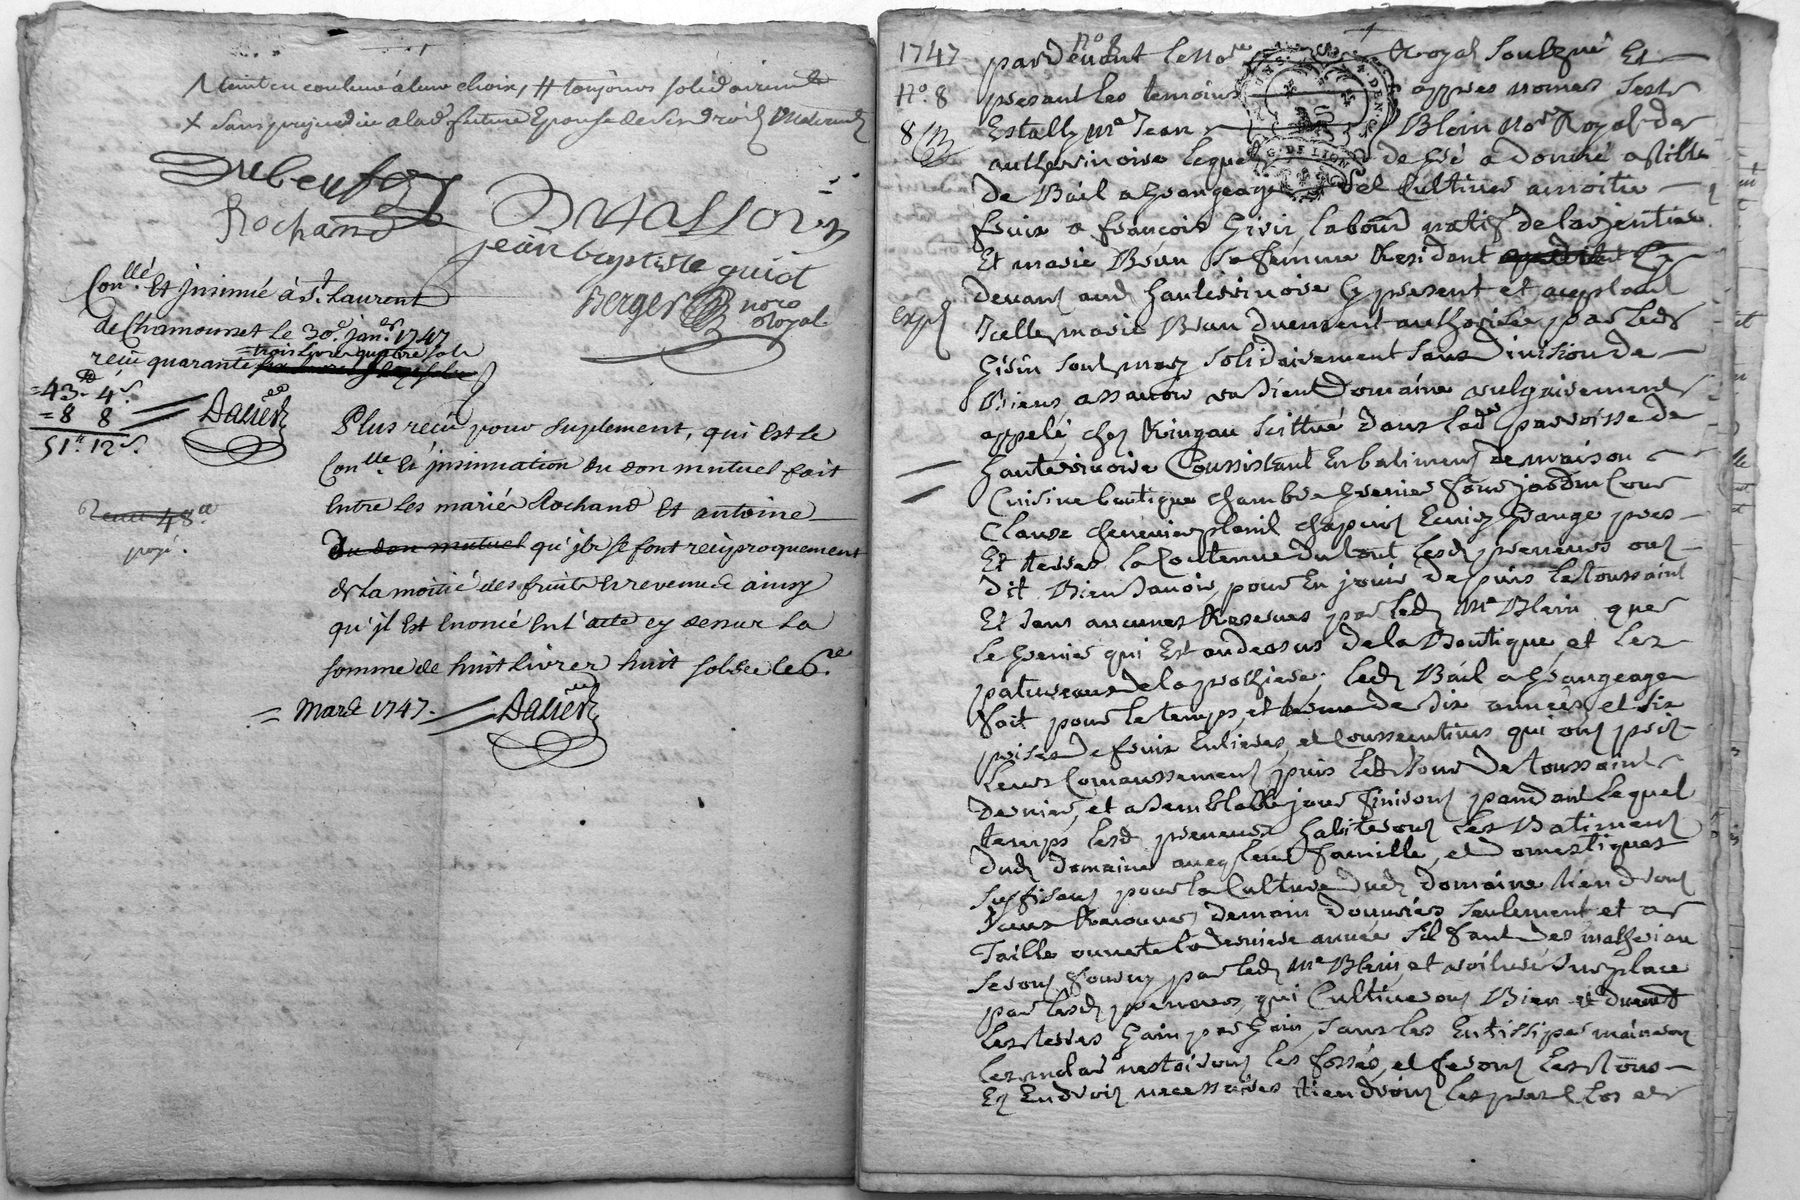 teint en couleur a leur choix, # toujours solidairem.t
x sans prejudice a lad.e future Epouse de ses droits
Dubeuf
Rochand
Dutasson
jean baptiste guiot
Berger no.re Royal
Con.llé Et jnsinué à S.t Laurent
de Chamousset le 30.e jan.er 1747
reçu quarante trois livres quatre sols
=43.# 4.s
=8 8
51.# 12.s
Dalier
Plus reçu pour suplement, qui est le
Con.lle Et jnsinuation du don mutuel fait
Entre les mariés Rochand Et antoine
du don mutuel qu'jls se font reciproquement
de La moitié des fruits Et revenus ainsy
qu'jl Est Enoncé En l'acte cy dessus La
somme de huit Livres huit sols ce 6.me
= Mars 1747.
Dalier
payé.
1747
N.o 8
N.o 8
8
Exp.d
pardevant le no.re Royal soubzné Et
presant les temoins appres nomes sest
Estably m.e Jean Blein no.re Royal de
authessinoise lequel de gré a donné a tiltre
de Bail a Grangeage et cultiver a moitie
fruis a francois Girin labour natif de larjentiere
Et marie Brun sa femme Residant
devant aud hautessinoise Cy present et aceptant
Icelle marie Brun duement authorisée par led
Girin sont mary solidairement sans division de
Biens assavoir un sient Domaine vulgairement
appelé chez Ringau scittué Dans lad.e parroisse de
hautessinoise Conssistant En batiment de maison
Cuisine boutique chambre Grenier four jardin Cour
Clause cheneviere plenil chapuis Ecurie Grange pres
Et terres la Contenue du tout lesd preneurs ont
dit Bien savoir, pour En jouir depuis la toussaint
Et sans aucunes Reserves par led M.e Blein que
le Grenier qui Est audessus de la Boutique et les
patureaux de la pothiere; led Bail a Grangeage
fait pour le temps et terme de six années et six
prises de fruis Entieres et Conssecutives qui ont pris
leurs Commenssement puis led Jour de toussaint
dernier, et a semblable jour finiront pandant lequel
temps lesd preneurs habiteront les Batiments
dud domaine avecq leur famille, et domestiques
suffisant pour la Culture dud domaine tiendront
Taille ouverte la derniere année sil faut des matheriau
seront fourny par led M.e Blein et voiturés sur place
par lesd preneurs, qui Cultiveront Bien et duement
les terres Gain par Gain, sans les Entissiper maineront
nestoiront les fossés, et feront les
Es Endrois necessaires tiendront les pres clos et